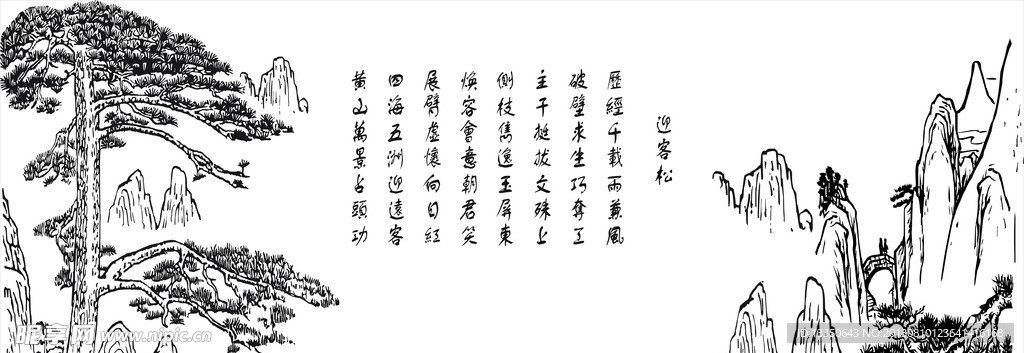 迎客松
歷經千載雨兼風
破壁求生巧奪工
主干挺拔文殊上
側枝雋逸玉屏東
煥容會意朝君笑
展臂虛懷向日紅
四海五洲迎遠客
黄山萬景占頭功
昵享网 www.nipic.cn